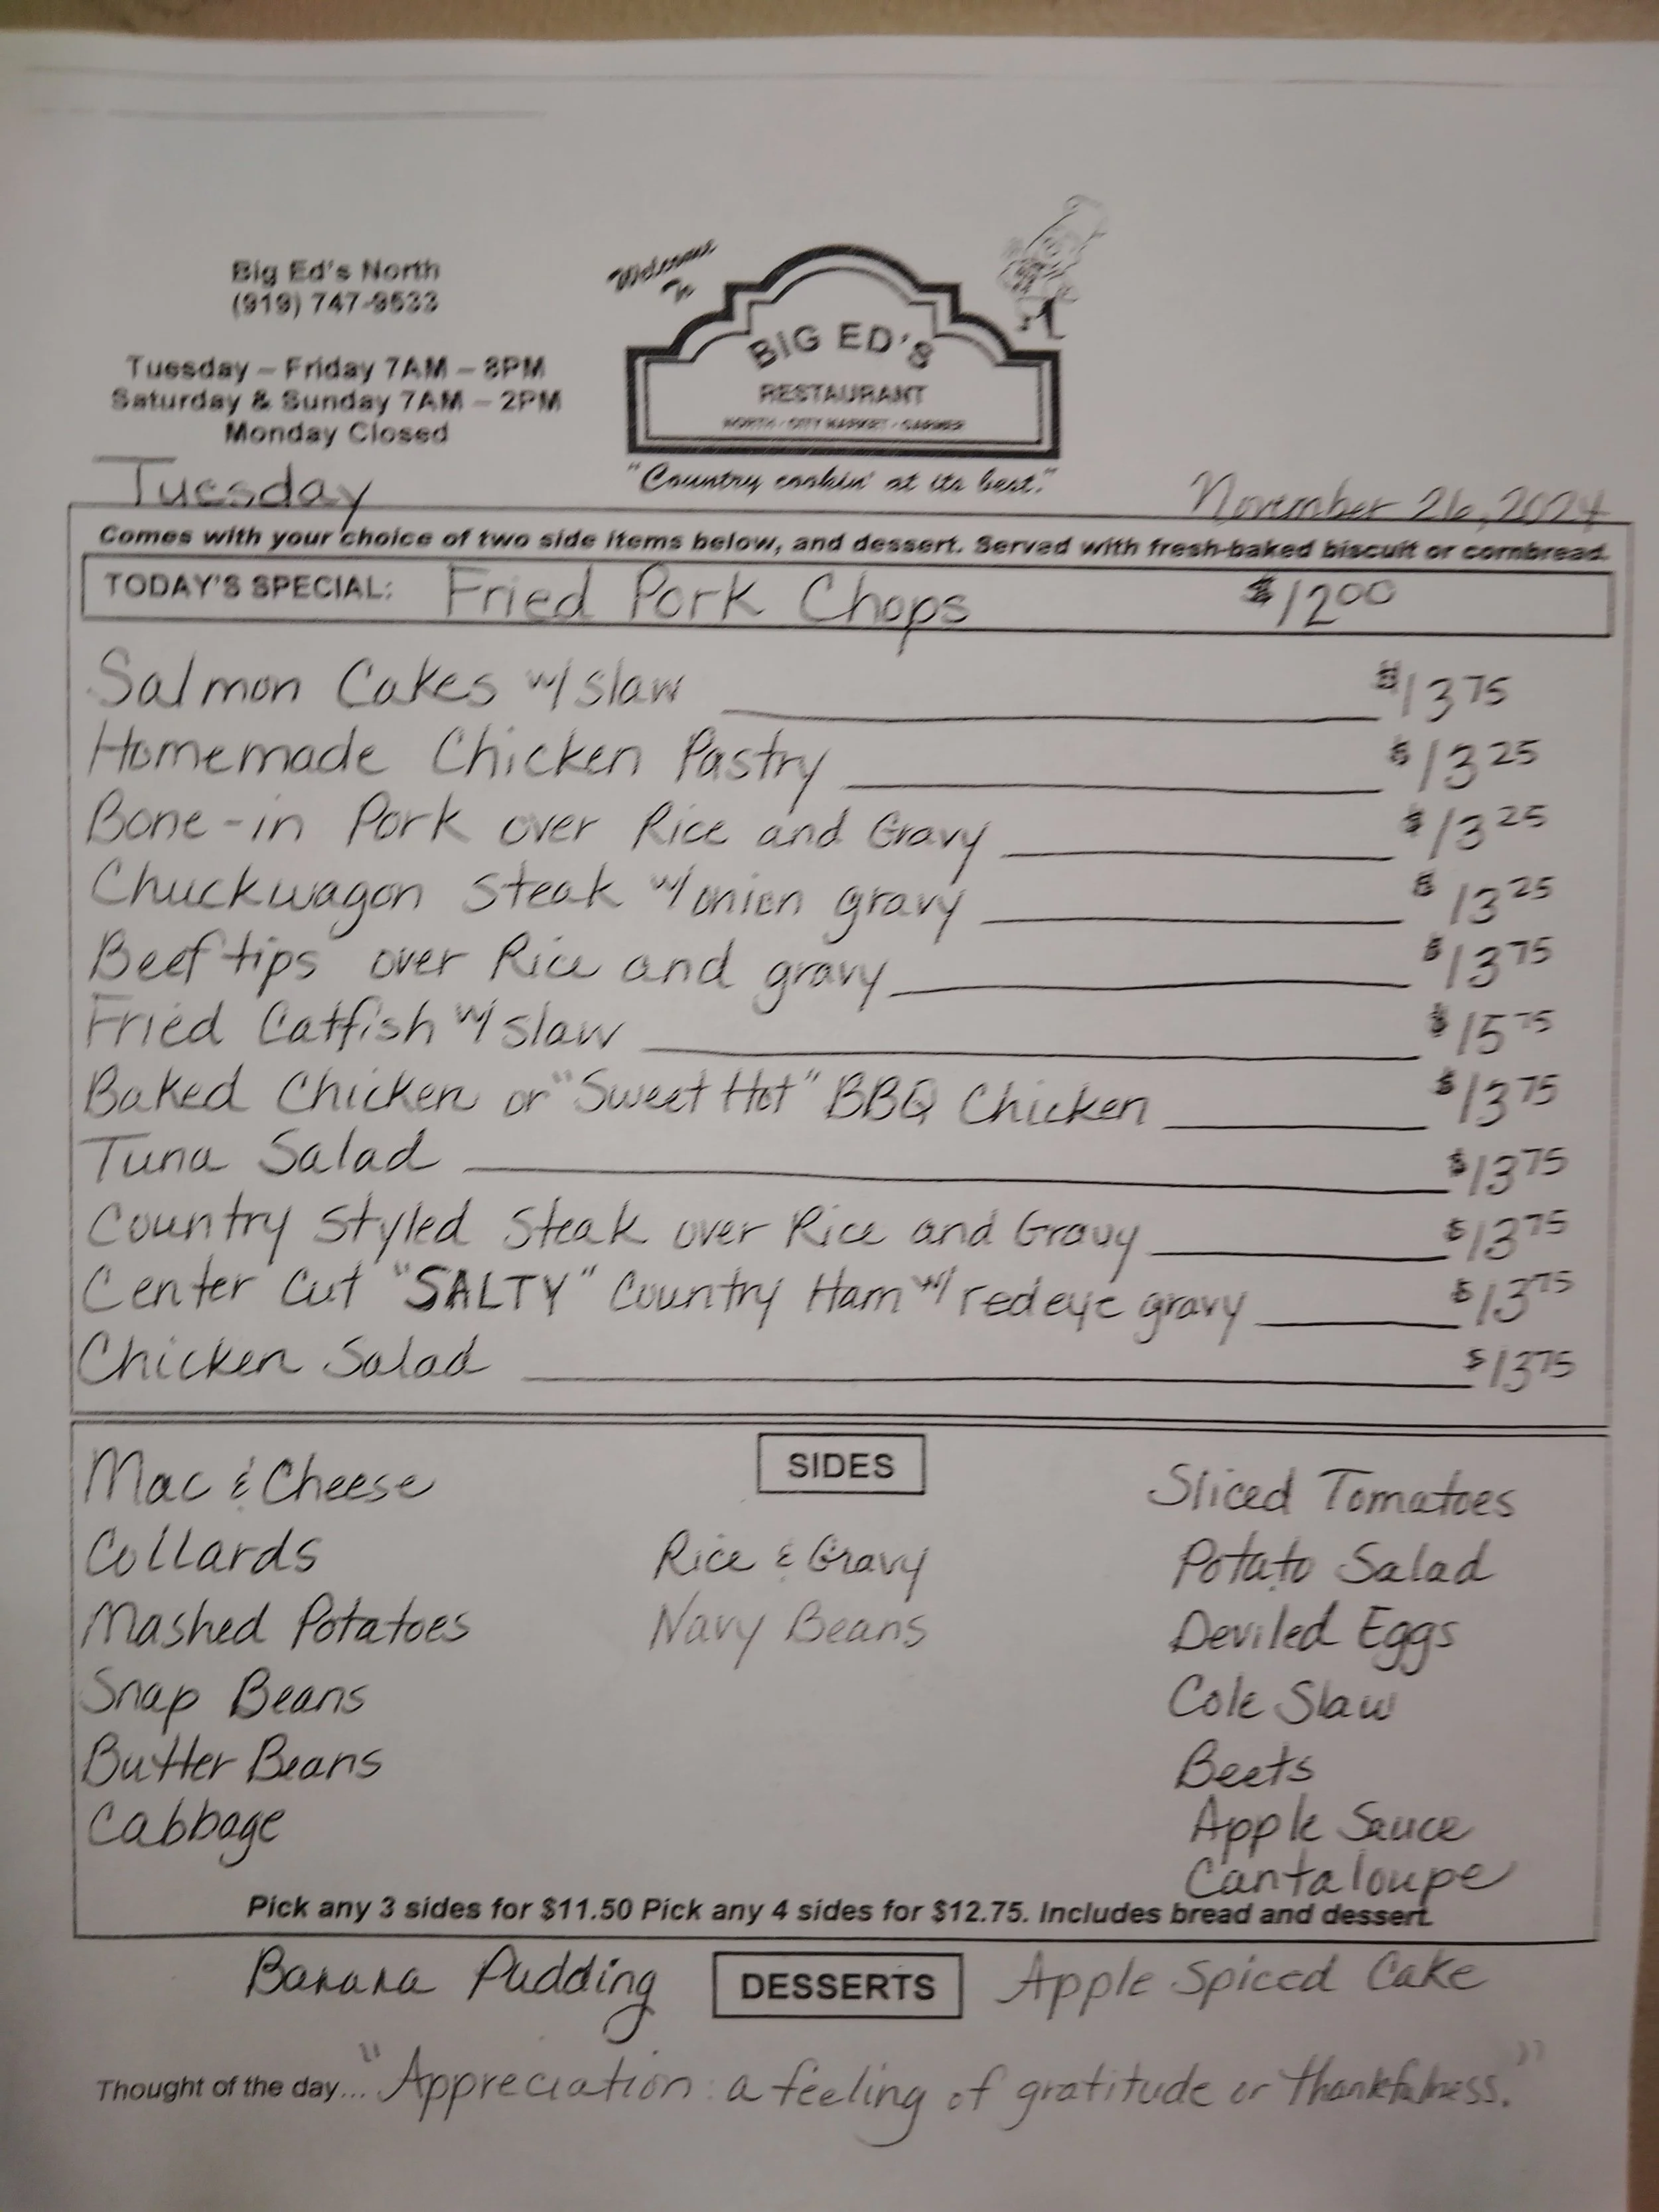 Big Ed's North
(919) 747-9533
Tuesday – Friday 7AM – 8PM
Saturday & Sunday 7AM – 2PM
Monday Closed
Welcome
To
BIG ED'S
RESTAURANT
NORTH · CITY MARKET · GARNER
"Country cookin' at its best."
Tuesday
November 26, 2024
Comes with your choice of two side items below, and dessert. Served with fresh-baked biscuit or cornbread.
TODAY'S SPECIAL: Fried Pork Chops $12 00
Salmon Cakes w/ slaw $13 75
Homemade Chicken Pastry $13 25
Bone-in Pork over Rice and Gravy $13 25
Chuckwagon Steak w/ onion gravy $13 25
Beef tips over Rice and gravy $13 75
Fried Catfish w/ slaw $15 75
Baked Chicken or "Sweet Hot" BBQ Chicken $13 75
Tuna Salad $13 75
Country Styled Steak over Rice and Gravy $13 75
Center Cut "SALTY" Country Ham w/ redeye gravy $13 75
Chicken Salad $13 75
SIDES
Mac & Cheese
Collards
Mashed Potatoes
Snap Beans
Butter Beans
Cabbage
Rice & Gravy
Navy Beans
Sliced Tomatoes
Potato Salad
Deviled Eggs
Cole Slaw
Beets
Apple Sauce
Cantaloupe
Pick any 3 sides for $11.50 Pick any 4 sides for $12.75. Includes bread and dessert.
Banana Pudding DESSERTS Apple Spiced Cake
Thought of the day... "Appreciation: a feeling of gratitude or thankfulness."